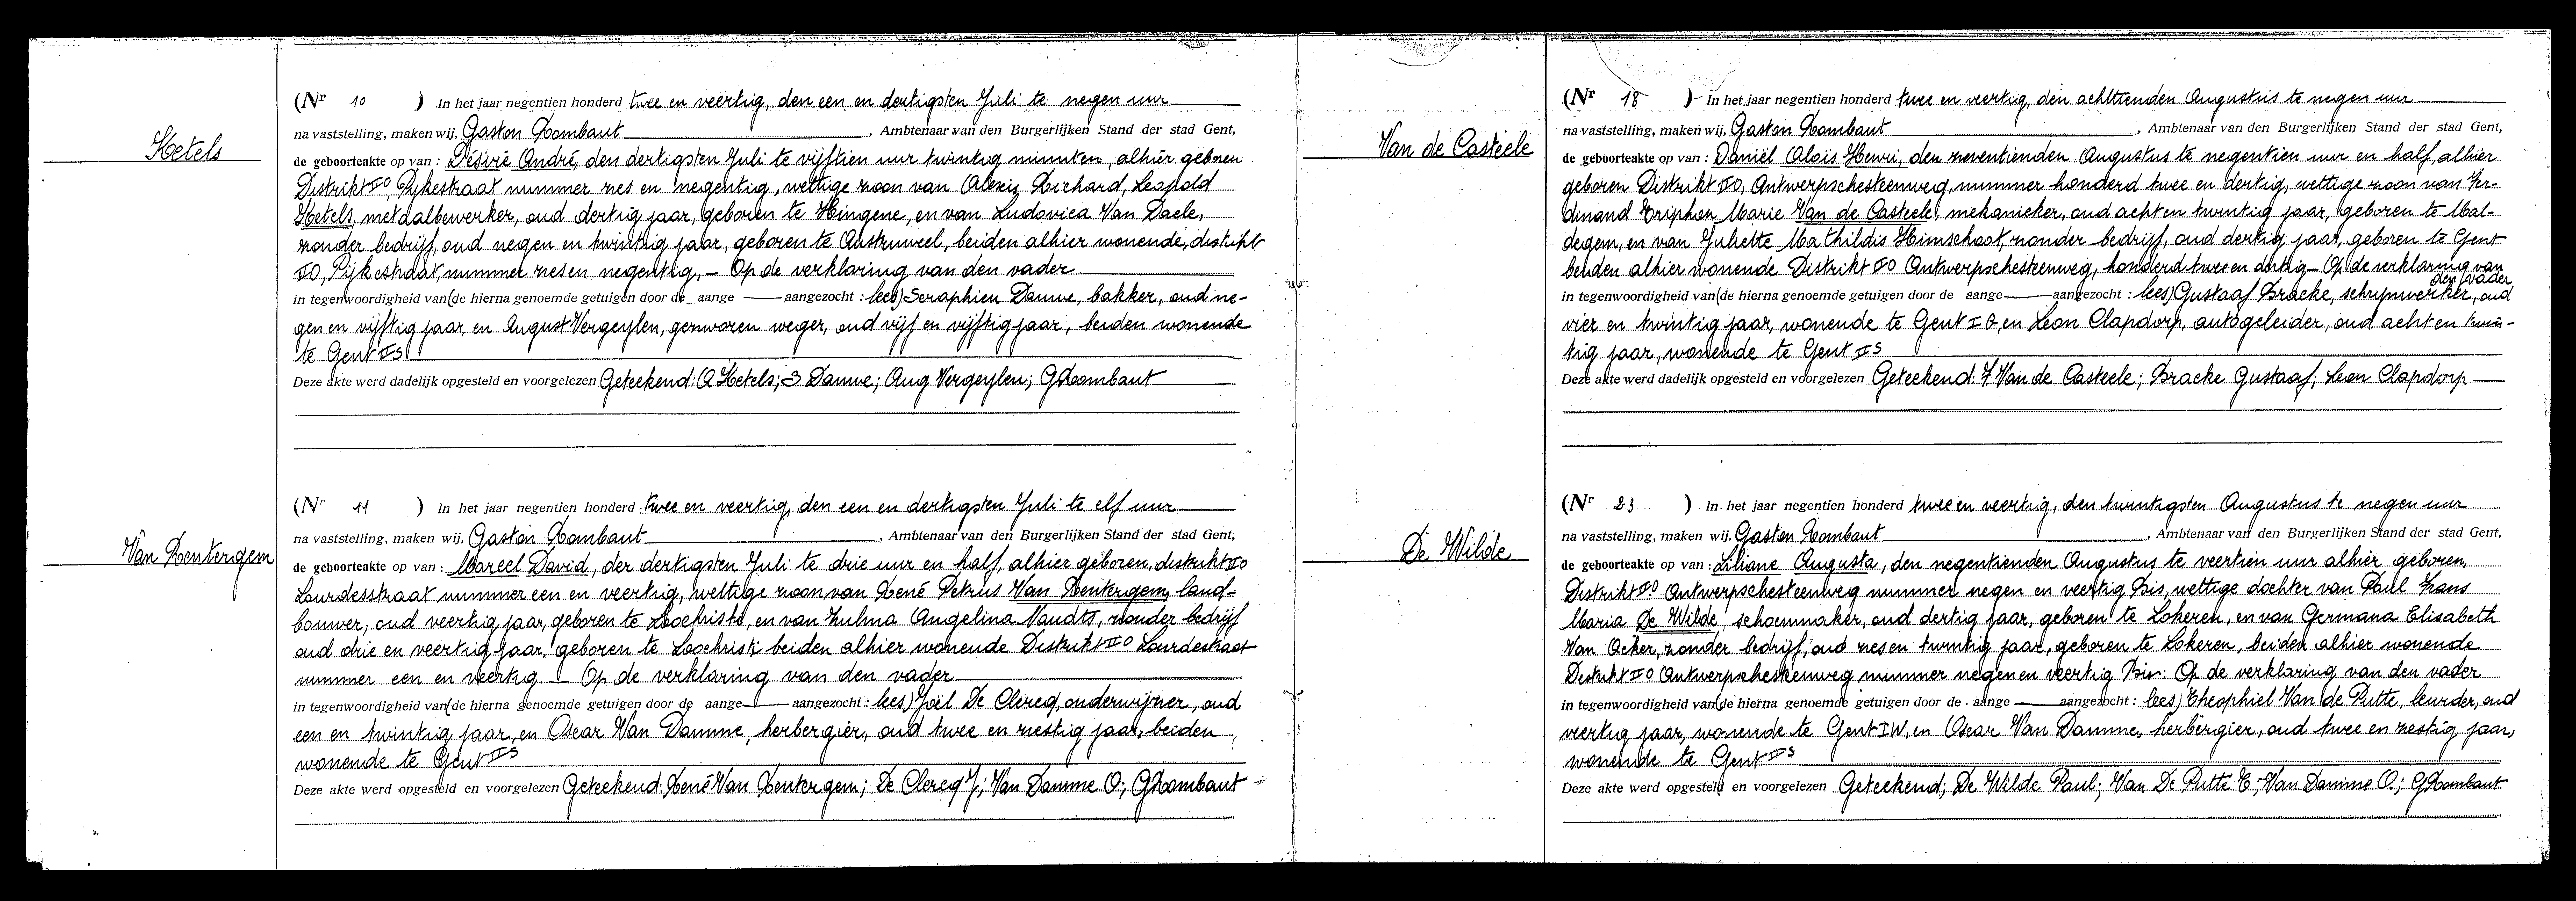 Ketels
(Nr 10 ) In het jaar negentien honderd twee en veertig, den een en dertigsten Juli te negen uur
na vaststelling, maken wij, Gaston Rombaut, Ambtenaar van den Burgerlijken Stand der stad Gent,
de geboorteakte op van : Désiré André, den dertigsten Juli te vijftien uur twintig minuten, alhier geboren
Distrikt II O, Pijkestraat nummer zes en negentig, wettige zoon van Alexis Richard, Leopold
Ketels, metaalbewerker, oud dertig jaar, geboren te Hingene, en van Ludovica Van Daele,
zonder bedrijf, oud negen en twintig jaar, geboren te Austruweel, beiden alhier wonende, distrikt
II O, Pijkestraat, nummer zes en negentig, – Op de verklaring van den vader
in tegenwoordigheid van (de hierna genoemde getuigen door de aange — aangezocht : lees) Seraphien Dauwe, bakker, oud ne-
gen en vijftig jaar, en August Vergeylen, gezworen weger, oud vijf en vijftig jaar, beiden wonende
te Gent II S
Deze akte werd dadelijk opgesteld en voorgelezen Geteekend: A Ketels; S Dauwe; Aug Vergeylen; G Rombaut
Van Renterigem
(Nr 11 ) In het jaar negentien honderd twee en veertig, den een en dertigsten Juli te elf uur
na vaststelling, maken wij, Gaston Rombaut, Ambtenaar van den Burgerlijken Stand der stad Gent,
de geboorteakte op van : Marcel David, der dertigsten Juli te drie uur en half, alhier geboren, distrikt II O
Lourdesstraat nummer een en veertig, wettige zoon van René Petrus Van Renterigem, land-
bouwer, oud veertig jaar, geboren te Loochristi, en van Zulma Angelina Naudts, zonder bedrijf
oud drie en veertig jaar, geboren te Loochristi beiden alhier wonende Distrikt II O Lourdestraat
nummer een en veertig. – Op de verklaring van den vader
in tegenwoordigheid van (de hierna genoemde getuigen door de aange — aangezocht : lees) Joël De Clercq, onderwijzer, oud
een en twintig jaar, en Oscar Van Damme, herbergier, oud twee en zestig jaar, beiden
wonende te Gent II S
Deze akte werd opgesteld en voorgelezen Geteekend: René Van Renterigem; De Clercq J; Van Damme O; G Rombaut
Van de Casteele
(Nr 18 ) In het jaar negentien honderd twee en veertig, den achttienden Augustus te negen uur
na vaststelling, maken wij, Gaston Rombaut, Ambtenaar van den Burgerlijken Stand der stad Gent,
de geboorteakte op van : Daniël Aloïs Henri, den zeventienden Augustus te negentien uur en half, alhier
geboren Distrikt II O, Antwerpschesteenweg, nummer honderd twee en dertig, wettige zoon van Fer-
dinand Triphon Marie Van de Casteele, mekanieker, oud acht en twintig jaar, geboren te Mal-
degem, en van Juliette Mathildis Himschoot, zonder bedrijf, oud dertig jaar, geboren te Gent
beiden alhier wonende Distrikt II O Antwerpschesteenweg, honderd twee en dertig – Op de verklaring van
den vader
in tegenwoordigheid van (de hierna genoemde getuigen door de aange — aangezocht : lees) Gustaaf Bracke, schrijnwerker, oud
vier en twintig jaar, wonende te Gent I O, en Leon Clapdorp, autogeleider, oud acht en twin-
tig jaar, wonende te Gent II S
Deze akte werd dadelijk opgesteld en voorgelezen Geteekend: F Van de Casteele; Bracke Gustaaf; Leon Clapdorp
De Wilde
(Nr 23 ) In het jaar negentien honderd twee en veertig, den twintigsten Augustus te negen uur
na vaststelling, maken wij, Gaston Rombaut, Ambtenaar van den Burgerlijken Stand der stad Gent,
de geboorteakte op van : Liliane Augusta, den negentienden Augustus te veertien uur alhier geboren,
Distrikt II O Antwerpschesteenweg nummer negen en veertig Bis, wettige dochter van Paul Frans
Maria De Wilde, schoenmaker, oud dertig jaar, geboren te Lokeren, en van Germana Elisabeth
Van Acker, zonder bedrijf, oud zes en twintig jaar, geboren te Lokeren, beiden alhier wonende
Distrikt II O Antwerpschesteenweg nummer negen en veertig Bis: Op de verklaring van den vader
in tegenwoordigheid van (de hierna genoemde getuigen door de aange — aangezocht : lees) Theophiel Van de Putte, leurder, oud
veertig jaar, wonende te Gent I W, en Oscar Van Damme, herbergier, oud twee en zestig jaar,
wonende te Gent II S
Deze akte werd opgesteld en voorgelezen Geteekend; De Wilde Paul; Van De Putte T; Van Damme O.; G Rombaut